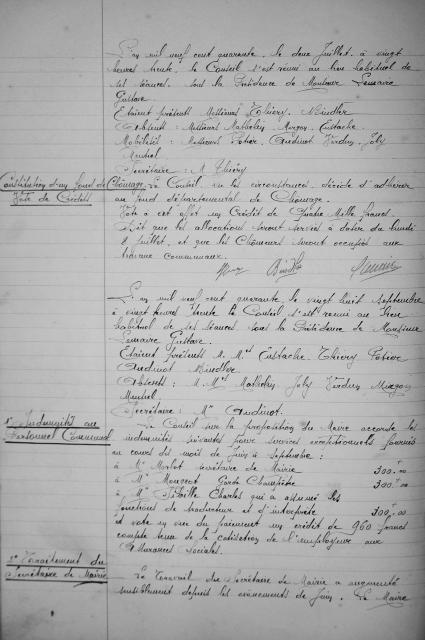 L'an mil neuf cent quarante, le deux Juillet, à vingt
heures trente, le Conseil s'est réuni au lieu habituel de
ses séances, sous la Présidence de Monsieur Lemaire
Gustave
Etaient présents Messieurs Thiéry, Bindler
Absents : Messieurs Mathelin, Eustache
Mobilisés : Messieurs Potier, Audinot, Verdun, Joly
Secrétaire : M. Thiéry
Constitution d'un fond de Chômage
Vote de Crédits
Le Conseil, vu les circonstances, décide d'adhérer
au fond départemental de Chômage.
Vote à cet effet un Crédit de Quatre Mille francs.
Dit que les allocations seront servies à dater du lundi
8 Juillet, et que les Chômeurs seront occupés aux
travaux Communaux.
L'an mil neuf cent quarante, le vingt huit septembre
à vingt heures trente le Conseil s'est réuni au lieu
habituel de ses séances sous la Présidence de Monsieur
Lemaire Gustave.
Etaient présents M. Mrs Eustache, Thiéry, Potier
Audinot, Bindler
Absents : M. Mrs Mathelin, Joly, Verdun
Secrétaire : Mr Audinot.
1° Indemnités au
Personnel Communal
Le Conseil sur la proposition du Maire accorde les
indemnités suivantes pour services exceptionnels fournis
au cours des mois de Juin à septembre :
à Mr Morlot secrétaire de Mairie 300f.00
à Mr Mougeot Garde Champêtre 300f.00
à Mr Charles qui a assumé les
fonctions de traducteur et d'interprète 300f.00
et vote en vue du paiement un crédit de 960 francs
compte tenu de la cotisation de l'employeur aux
Assurances sociales.
2° Traitement du
Secrétaire de Mairie
Le Travail du Secrétaire de Mairie a augmenté
sensiblement depuis les évènements de Juin. Le Maire